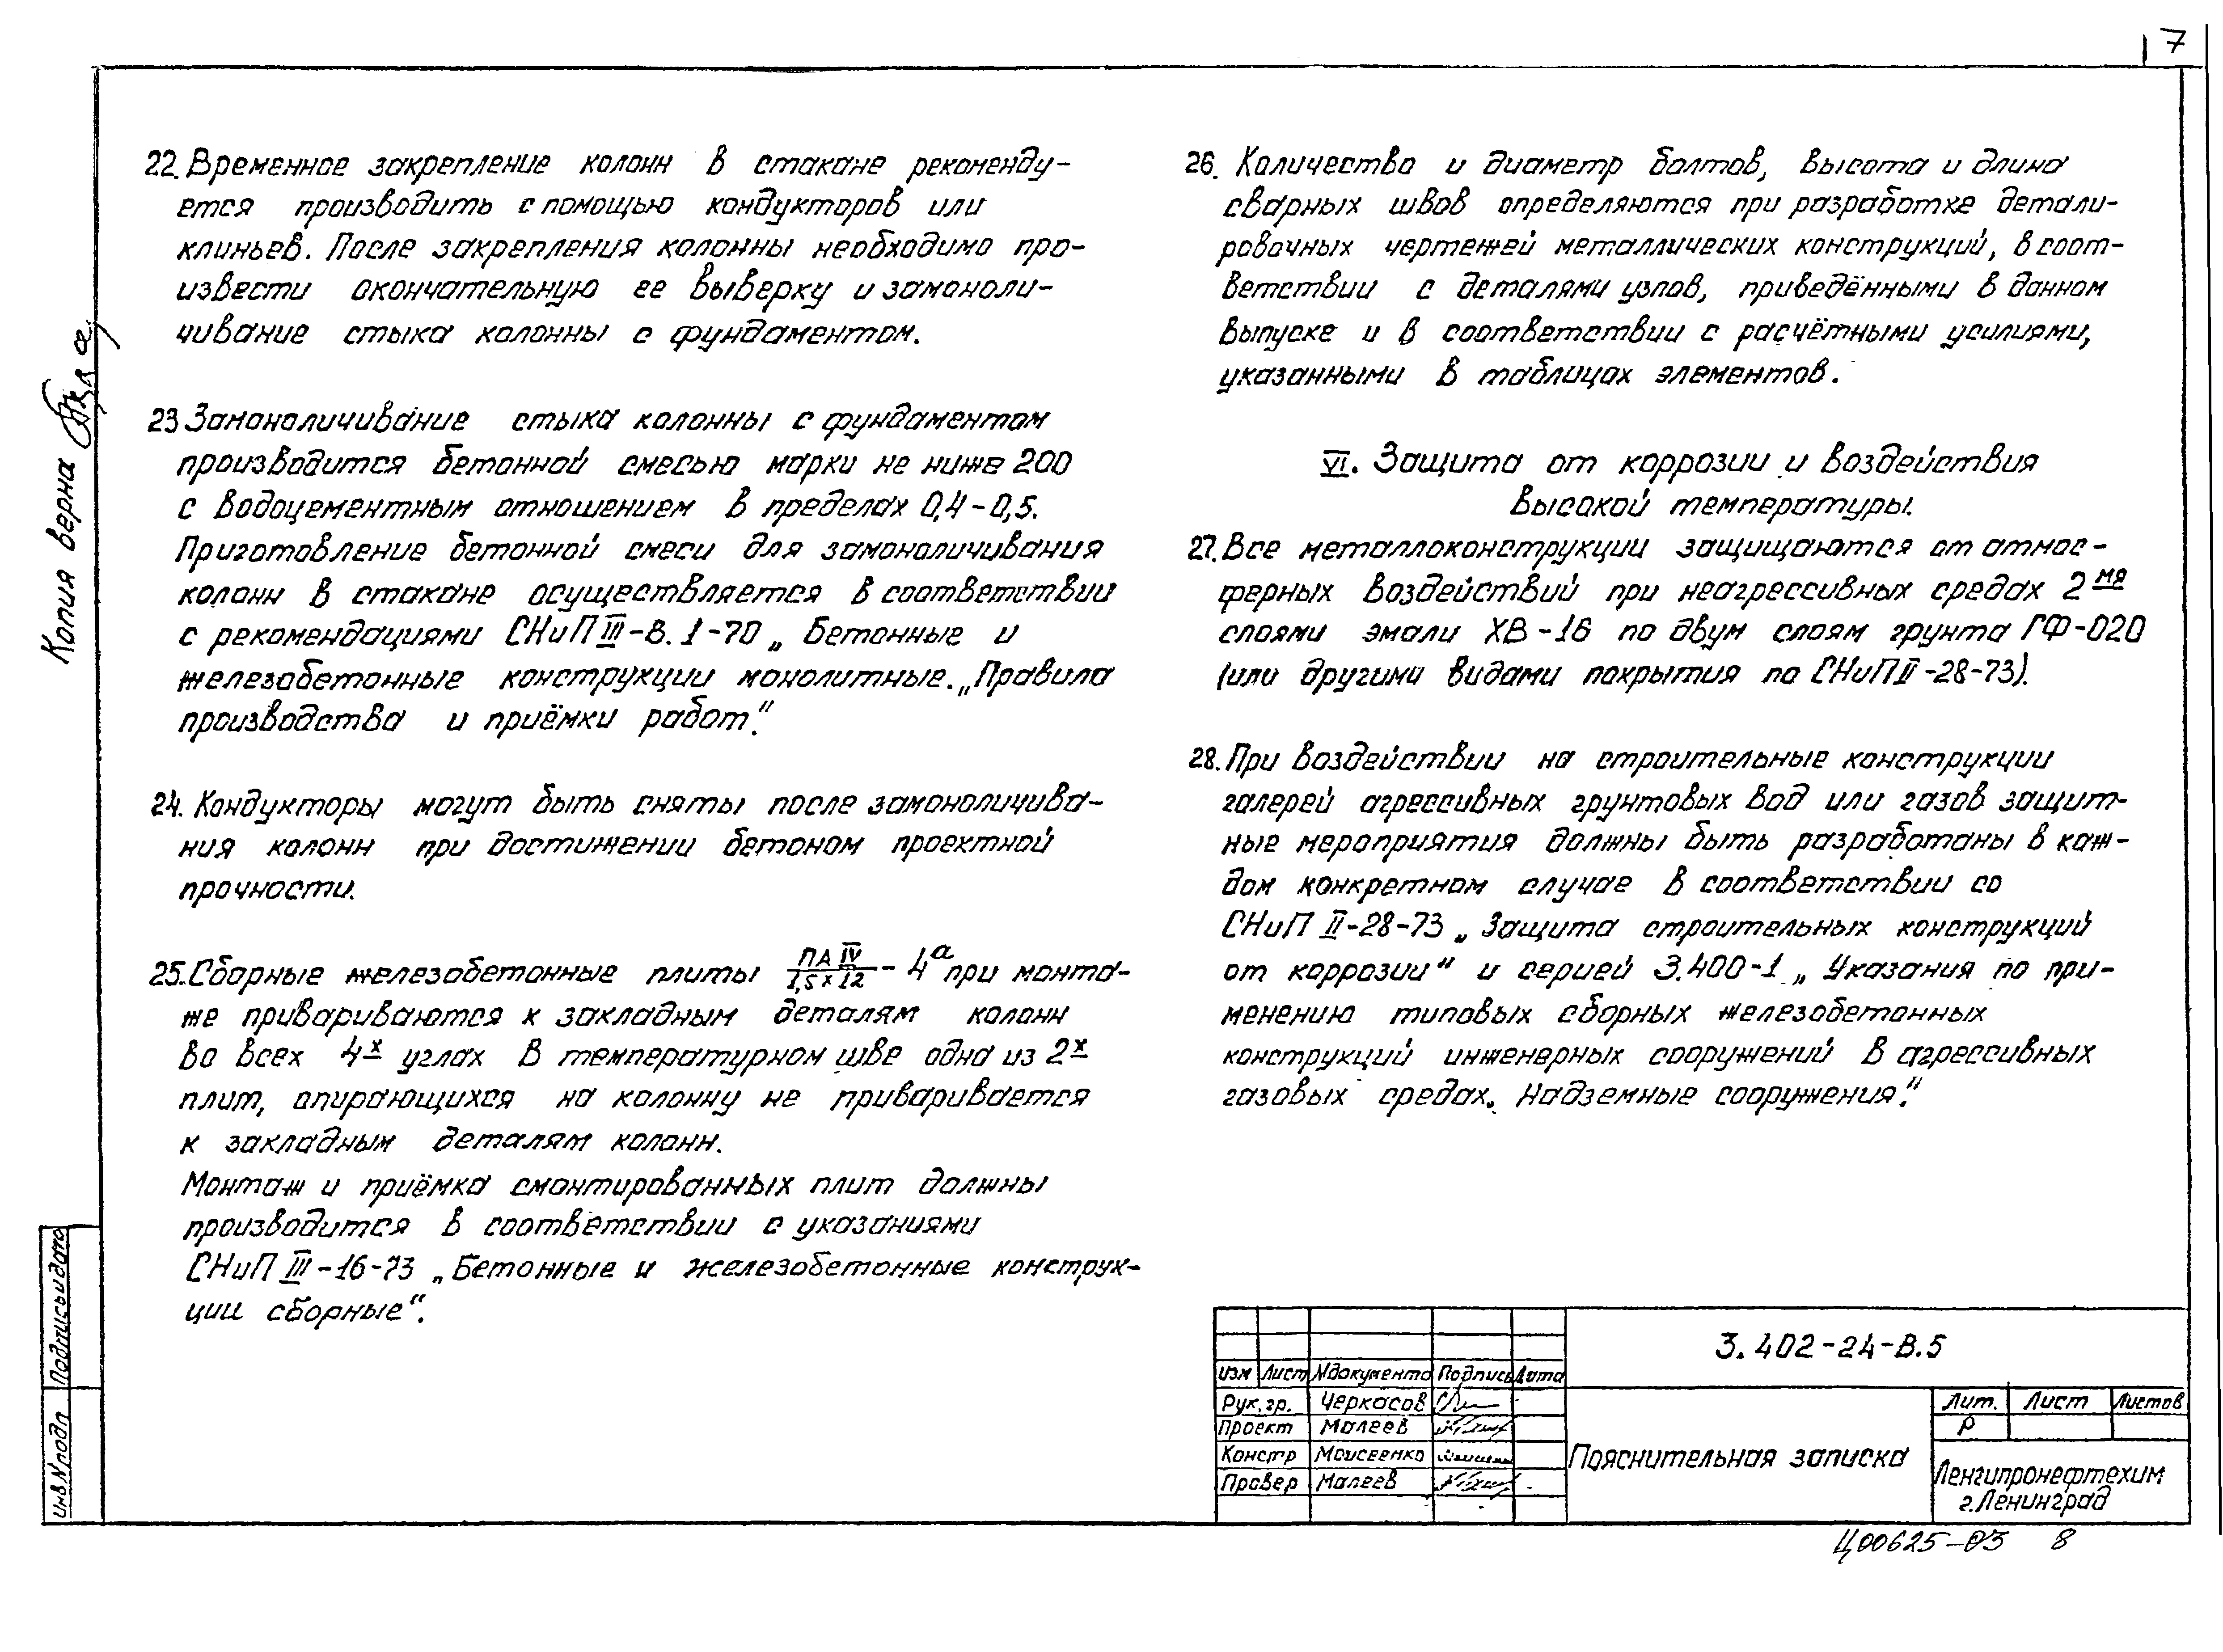 7
22. Временное закрепление колонн в стакане рекоменду-
ется производить с помощью кондукторов или
клиньев. После закрепления колонны необходимо про-
извести окончательную ее выверку и замоноли-
чивание стыка колонны с фундаментом.
23 Замоноличивание стыка колонны с фундаментом
производится бетонной смесью марки не ниже 200
с водоцементным отношением в пределах 0,4-0,5.
Приготовление бетонной смеси для замоноличивания
колонн в стакане осуществляется в соответствии
с рекомендациями СНиП III-В.1-70 „Бетонные и
железобетонные конструкции монолитные. „Правила
производства и приёмки работ."
24. Кондукторы могут быть сняты после замоноличива-
ния колонн при достижении бетоном проектной
прочности.
25. Сборные железобетонные плиты ПА IV/1,5×12 - 4а при монта-
же привариваются к закладным деталям колонн
во всех 4х углах В температурном шве одна из 2х
плит, опирающихся на колонну не приваривается
к закладным деталям колонн.
Монтаж и приёмка смонтированных плит должны
производится в соответствии с указаниями
СНиП III-16-73 „Бетонные и железобетонные конструк-
ции сборные".
26. Количество и диаметр болтов, высота и длина
сварных швов определяются при разработке детали-
ровочных чертежей металлических конструкций, в соот-
ветствии с деталями узлов, приведёнными в данном
выпуске и в соответствии с расчётными усилиями,
указанными в таблицах элементов.
VI. Защита от коррозии и воздействия
высокой температуры.
27. Все металлоконструкции защищаются от атмос-
ферных воздействий при неагрессивных средах 2мя
слоями эмали ХВ-16 по двум слоям грунта ГФ-020
(или другими видами покрытия по СНиП II-28-73).
28. При воздействии на строительные конструкции
галерей агрессивных грунтовых вод или газов защит-
ные мероприятия должны быть разработаны в каж-
дом конкретном случае в соответствии со
СНиП II-28-73 „Защита строительных конструкций
от коррозии" и серией 3.400-1 „Указания по при-
менению типовых сборных железобетонных
конструкций инженерных сооружений в агрессивных
газовых средах. Надземные сооружения."
Копия верна
Подпись и дата
Инв.N подл
3.402-24-В.5
Изм Лист N документа Подпись Дата
Рук.гр. Черкасов
Проект Малеев
Констр Моисеенко
Провер Малеев
Пояснительная записка
Лит. Лист Листов
Р
Ленгипронефтехим
г.Ленинград
Ц00625-03 8